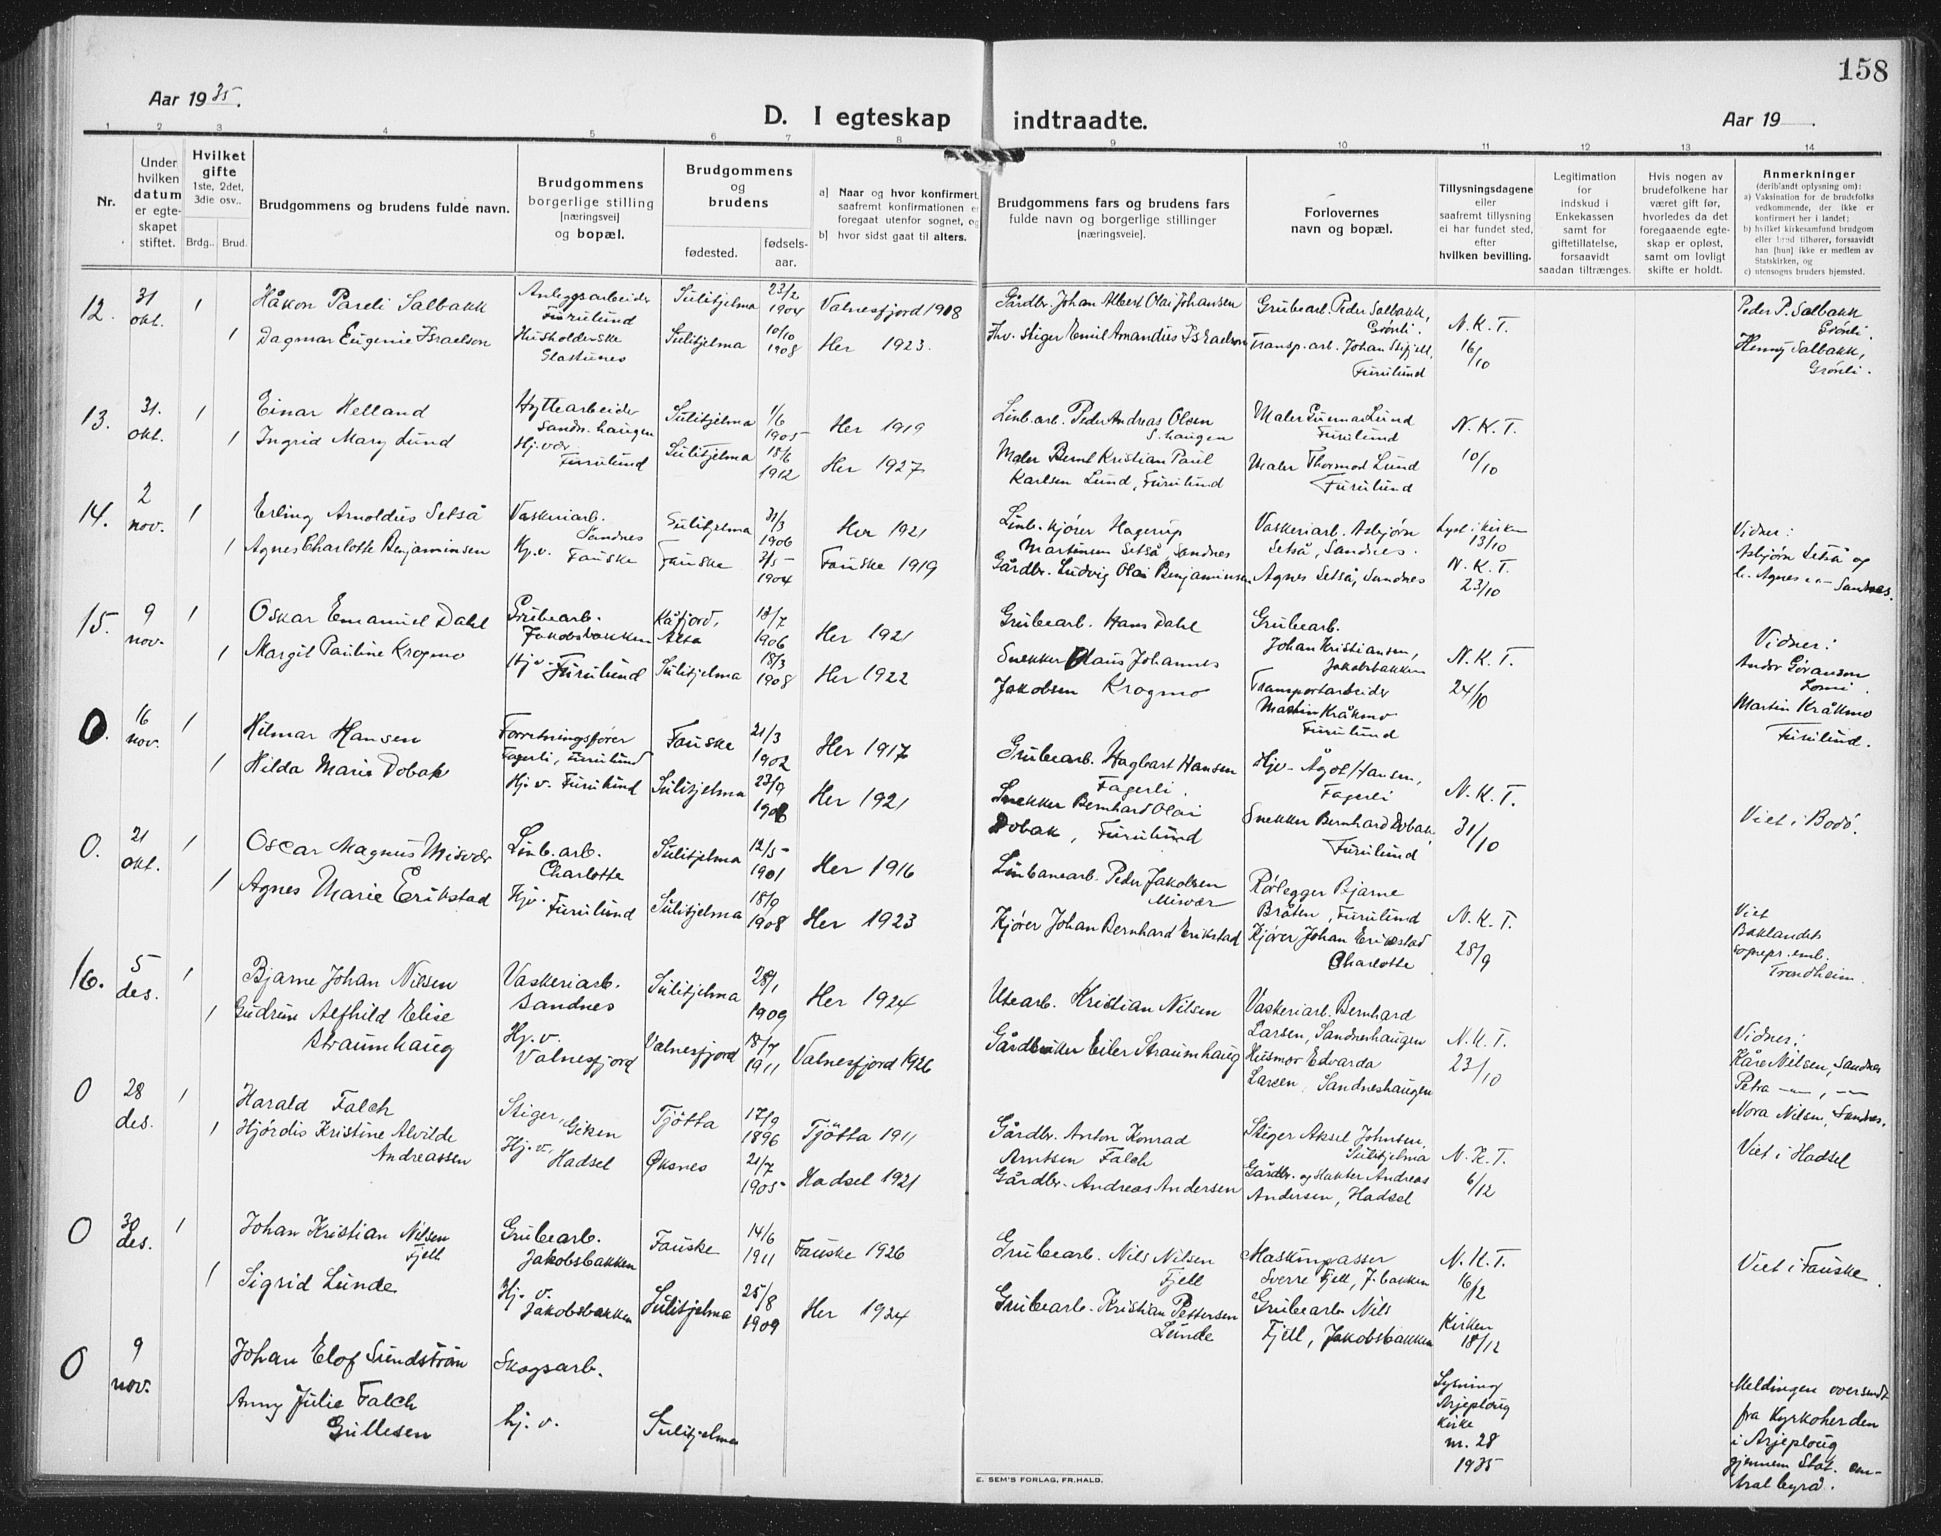 158
Aar 1935.
D. I egteskap indtraadte.
Aar 19 .
1 2 3 4 5 6 7 8 9 10 11 12 13 14
Nr.
Under hvilken datum er egte-skapet stiftet.
Hvilket gifte 1ste, 2det, 3die osv..
Brdg.. Brud.
Brudgommens og brudens fulde navn.
Brudgommens borgerlige stilling [næringsvei] og bopæl.
Brudgommens og brudens
fødested.
fødsels-aar.
a) Naar og hvor konfirmert, saafremt konfirmationen er foregaat utenfor sognet, og
b) hvor sidst gaat til alters.
Brudgommens fars og brudens fars fulde navn og borgerlige stillinger [næringsveie].
Forlovernes navn og bopæl.
Tillysningsdagene eller saafremt tillysning ei har fundet sted, efter hvilken bevilling.
Legitimation for indskud i Enkekassen samt for giftetillatelse, forsaavidt saadan tiltrænges.
Hvis nogen av brudefolkene har været gift før, hvorledes da det foregaaende egte-skap er opløst, samt om lovligt skifte er holdt.
Anmerkninger
(deriblandt oplysning om):
a) Vaksination for de brudefolks vedkommende, der ikke er konfirmert her i landet;
b) hvilket kirkesamfund brudgom eller brud tilhører, forsaavidt han [hun] ikke er medlem av Statskirken, og
c) utensogns bruders hjemsted.
12. 31 okt. 1 Håkon Pareli Salbakk Anleggsarbeider Furulund Sulitjelma 23/2 1904 Valnesfjord 1918 Gårdbr. Johan Albert Olai Johansen Grubearb. Peder Salbakk, Grønli. N.K.T. 16/10 Peder P. Salbakk Grønli
1 Dagmar Eugenie Israelsen Husholderske Glastunes Sulitjelma 10/10 1908 Her 1923. Fhv. Stiger Emil Amandus Israelsen Transp. arb. Johan Stifjell, Furulund Henny Salbakk, Grønli.
13. 31. okt. 1 Einar Helland Hyttearbeider Sandn. haugen Sulitjelma 1/6 1905 Her 1919 Linb. arb. Peder Andreas Olsen S. haugen Maler Gunnar Lund Furulund N.K.T. 10/10
1 Ingrid Mary Lund Hj. vær. Furulund Sulitjelma 18/6 1912 Her 1927 Maler Bernt Kristian Paul Karlsen Lund, Furulund Maler Thormod Lund Furulund
14. 2 nov. 1 Erling Arnoldus Setså Vaskeriarb. Sandnes Sulitjelma 31/3 1906 Her 1921 Linb. kjører Hagerup Martinsen Setså, Sandnes Vaskeriarb. Asbjørn Setså, Sandnes. Lyst i kirken 13/10 Vidner: Asbjørn Setså og
1 Agnes Charlotte Benjaminsen Hj. v. Fauske Fauske 2/5 1904 Fauske 1919 Gårdbr. Ludvig Olai Benjaminsen Agnes Setså, Sandnes N.K.T. 23/10 Agnes Sandnes.
15. 9 nov. 1 Oskar Emanuel Dahl Grubearb. Jakobsbakken Kåfjord, Alta 12/7 1906 Her 1921 Grubearb. Hans Dahl Grubearb. Johan Kristiansen, Jakobsbakken N.K.T. 24/10 Vidner: Andor Gøransen Lomi.
1 Margit Pauline Krogmo Hj. v. Furulund Sulitjelma 18/3 1908 Her 1922 Snekker Olaus Johannes Jakobsen Krogmo Transportarbeider Martin Kråkmo Furulund Martin Kråkmo Furulund.
0. 16 nov. 1 Hilmar Hansen Forretningsfører Fagerli, Furulund Fauske 21/3 1902 Her 1917 Grubearb. Hagbart Hansen Fagerli. Hjv. Ågot Hansen, Fagerli N.K.T. 31/10 Viet i Bodø.
1 Hilda Marie Dobak Hj. v. Furulund Sulitjelma 23/9 1906 Her 1921 Snekker Bernhard Olai Dobak, Furulund Snekker Bernhard Dobak, Furulund
0. 21 okt. 1 Oscar Magnus Misvær Linb. arb. Charlotte Sulitjelma 12/5 1901 Her 1916 Linbanearb. Peder Jakobsen Misvær Rørlegger Bjarne Bråten, Furulund N.K.T. 28/9 Viet Baklandets sognepr. emb. Trondheim.
1 Agnes Marie Erikstad Hjv. Furulund Sulitjelma 18/9 1908 Her 1923 Kjører Johan Bernhard Erikstad Kjører Johan Erikstad Charlotte
16. 5 des. 1 Bjarne Johan Nilsen Vaskeriarb. Sandnes Sulitjelma 28/1 1909 Her 1924 Utearb. Kristian Nilsen Vaskeriarb. Bernhard Larsen, Sandneshaugen N.K.T. 23/10 Vidner: Kåre Nilsen, Sandnes
1 Gudrun Alfhild Elise Straumhaug Hj. v. Valnesfjord Valnesfjord 18/7 1911 Valnesfjord 1926 Gårdbruker Eiler Straumhaug Husmor Edvarda Larsen, Sandneshaugen Petra —"—, —"— Nora Nilsen, Sandnes.
0 28 des. 1 Harald Falch Stiger, Giken Tjøtta 17/9 1896 Tjøtta 1911 Gårdbr. Anton Konrad Arntsen Falch Stiger Aksel Johnsen, Sulitjelma N.K.T. 6/12 Viet i Hadsel
1 Hjørdis Kristine Alvilde Andreassen Hj. v. Hadsel Øksnes 21/7 1905 Hadsel 1921 Gårdbr. Andreas Andersen Gårdbr. og slakter Andreas Andersen, Hadsel
0 30 des. 1 Johan Kristian Nilsen Fjell Grubearb. Jakobsbakken Fauske 14/6 1911 Fauske 1926 Grubearb. Nils Nilsen Fjell Maskinpasser Sverre Fjell, J. bakken N.K.T. 16/12 Viet i Fauske.
1 Sigrid Lunde Hj. v. Jakobsbakken Sulitjelma 25/8 1909 Her 1924 Grubearb. Kristian Pettersen Lunde Grubearb. Nils Fjell, Jakobsbakken Kirken 18/12
0 9 nov. Johan Elof Sundström Skogsarb. Lysning Arjeploug kirke nr. 28 1935 Meldingen oversendt fra Kyrkoherden i Arjeploug gjennem Stat. cen-tral byrå.
Anny Julie Falch Gullesen hj. v. Sulitjelma
E. SEM'S FORLAG, FR.HALD.